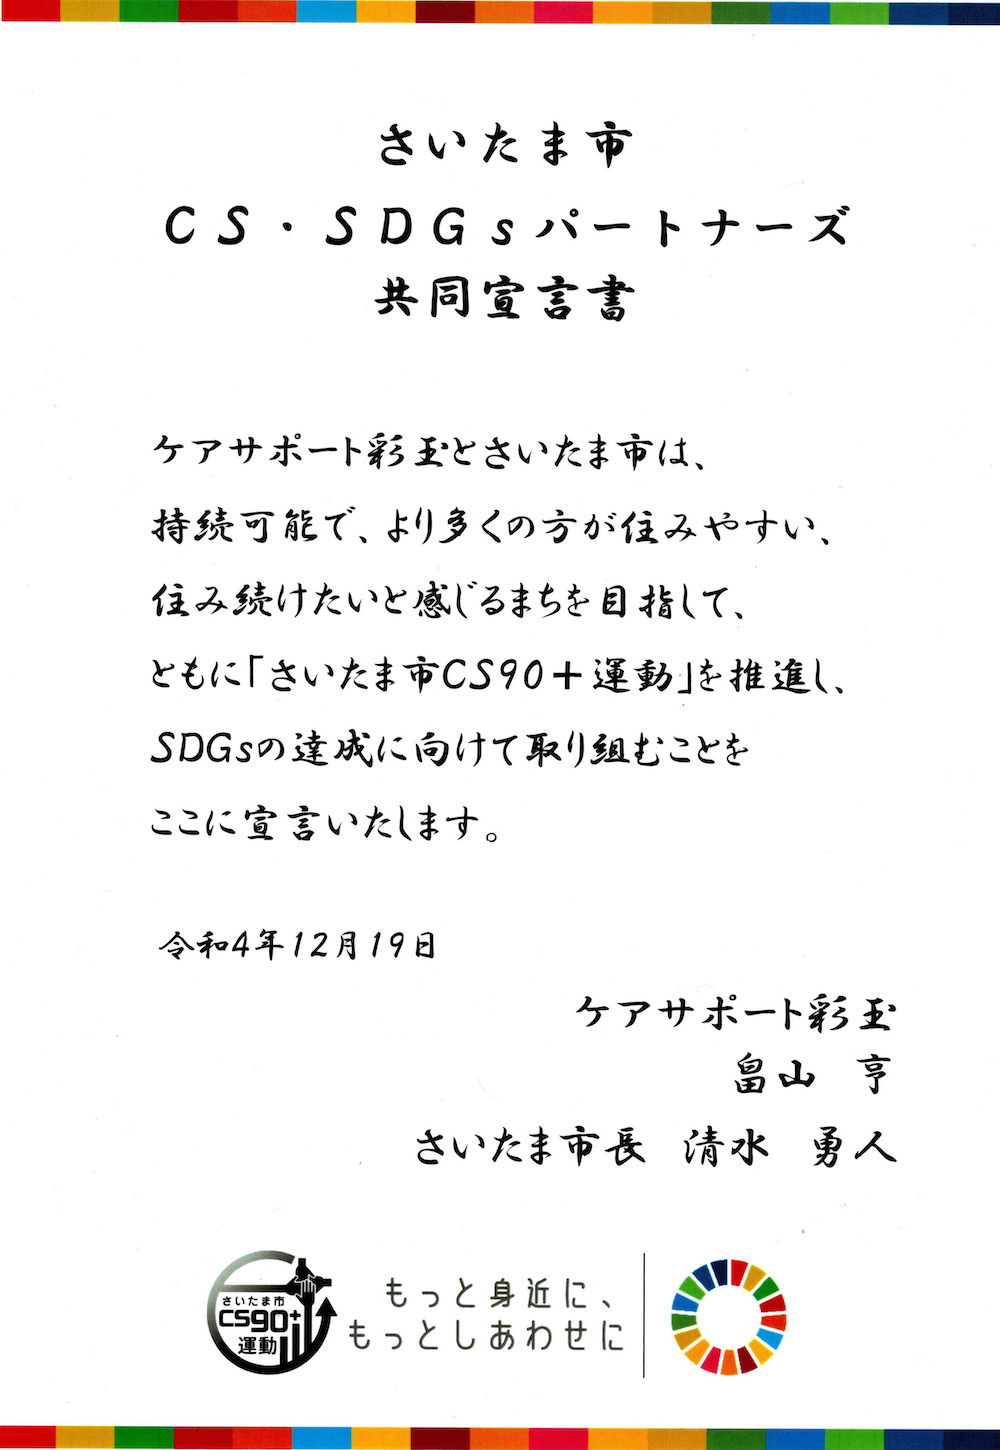 さいたま市
ＣＳ・ＳＤＧｓパートナーズ
共同宣言書
ケアサポート彩玉とさいたま市は、
持続可能で、より多くの方が住みやすい、
住み続けたいと感じるまちを目指して、
ともに「さいたま市CS90＋運動」を推進し、
SDGsの達成に向けて取り組むことを
ここに宣言いたします。
令和4年12月19日
ケアサポート彩玉
畠山　亨
さいたま市長　清水　勇人
さいたま市
CS90+
運動
もっと身近に、
もっとしあわせに